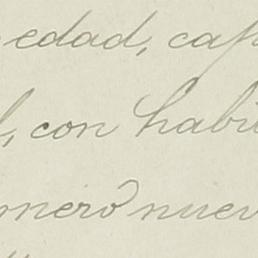 edad, cap
, con habi
mero nuev